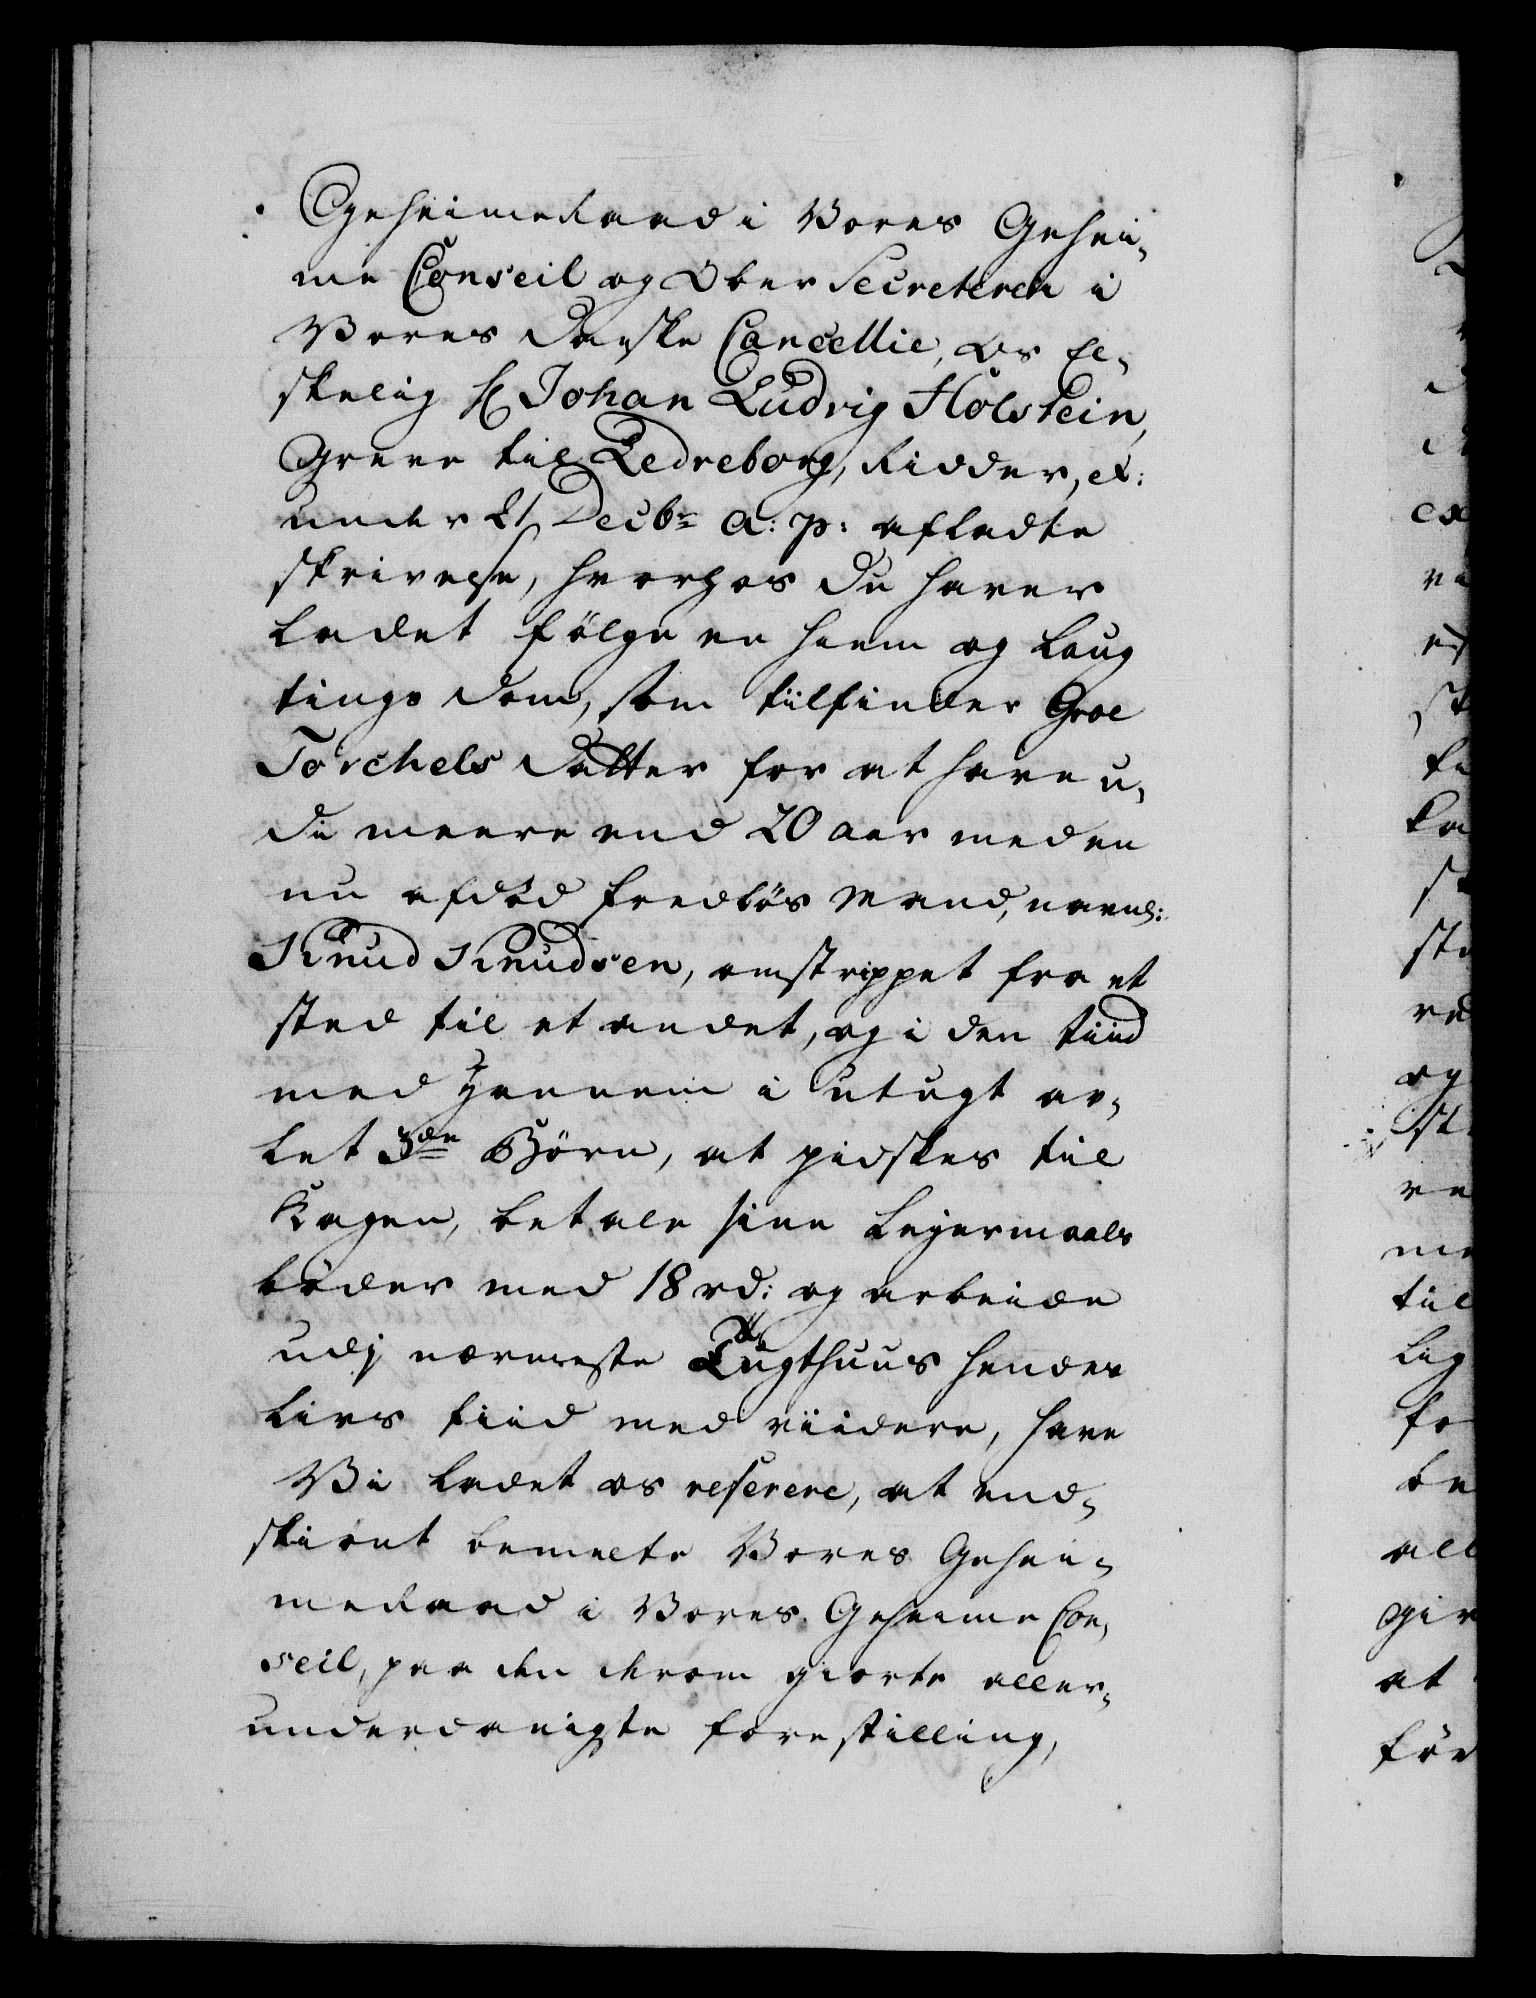 Geheimeraad i Vores Gehei-
me Conseil og Ober Secreteren i
Vores Danske Cancellie, Os El-
skelig Hr Johan Ludvig Holstein,
Greve til Ledreborg, Ridder, etc:
under 21 Decbr a: p: afladte
skrivelse, hvorhos Du haver
ladet følge en Hiem og Laug
tings dom, som tilfinder Groe
Torchels Datter for at have u-
di meere end 20 aar med en
nu afdød fredløs Mand, navnl:
Knud Knudsen, omstrippet fra et
sted til et andet, og i den tiid
med hannem i utugt av-
let 3de Børn, at pidskes til
Kagen, betale sine Leyermaals
bøder med 18 rd: og arbeide
udj nærmeste Tugthuus hendes
Livs tiid med viidere, have
Vi ladet os referere, at end-
skiønt bemelte Vores Gehei-
meraad i Vores Geheime Con-
seil, paa den derom giorte aller-
underdanigste forestilling,
til
at